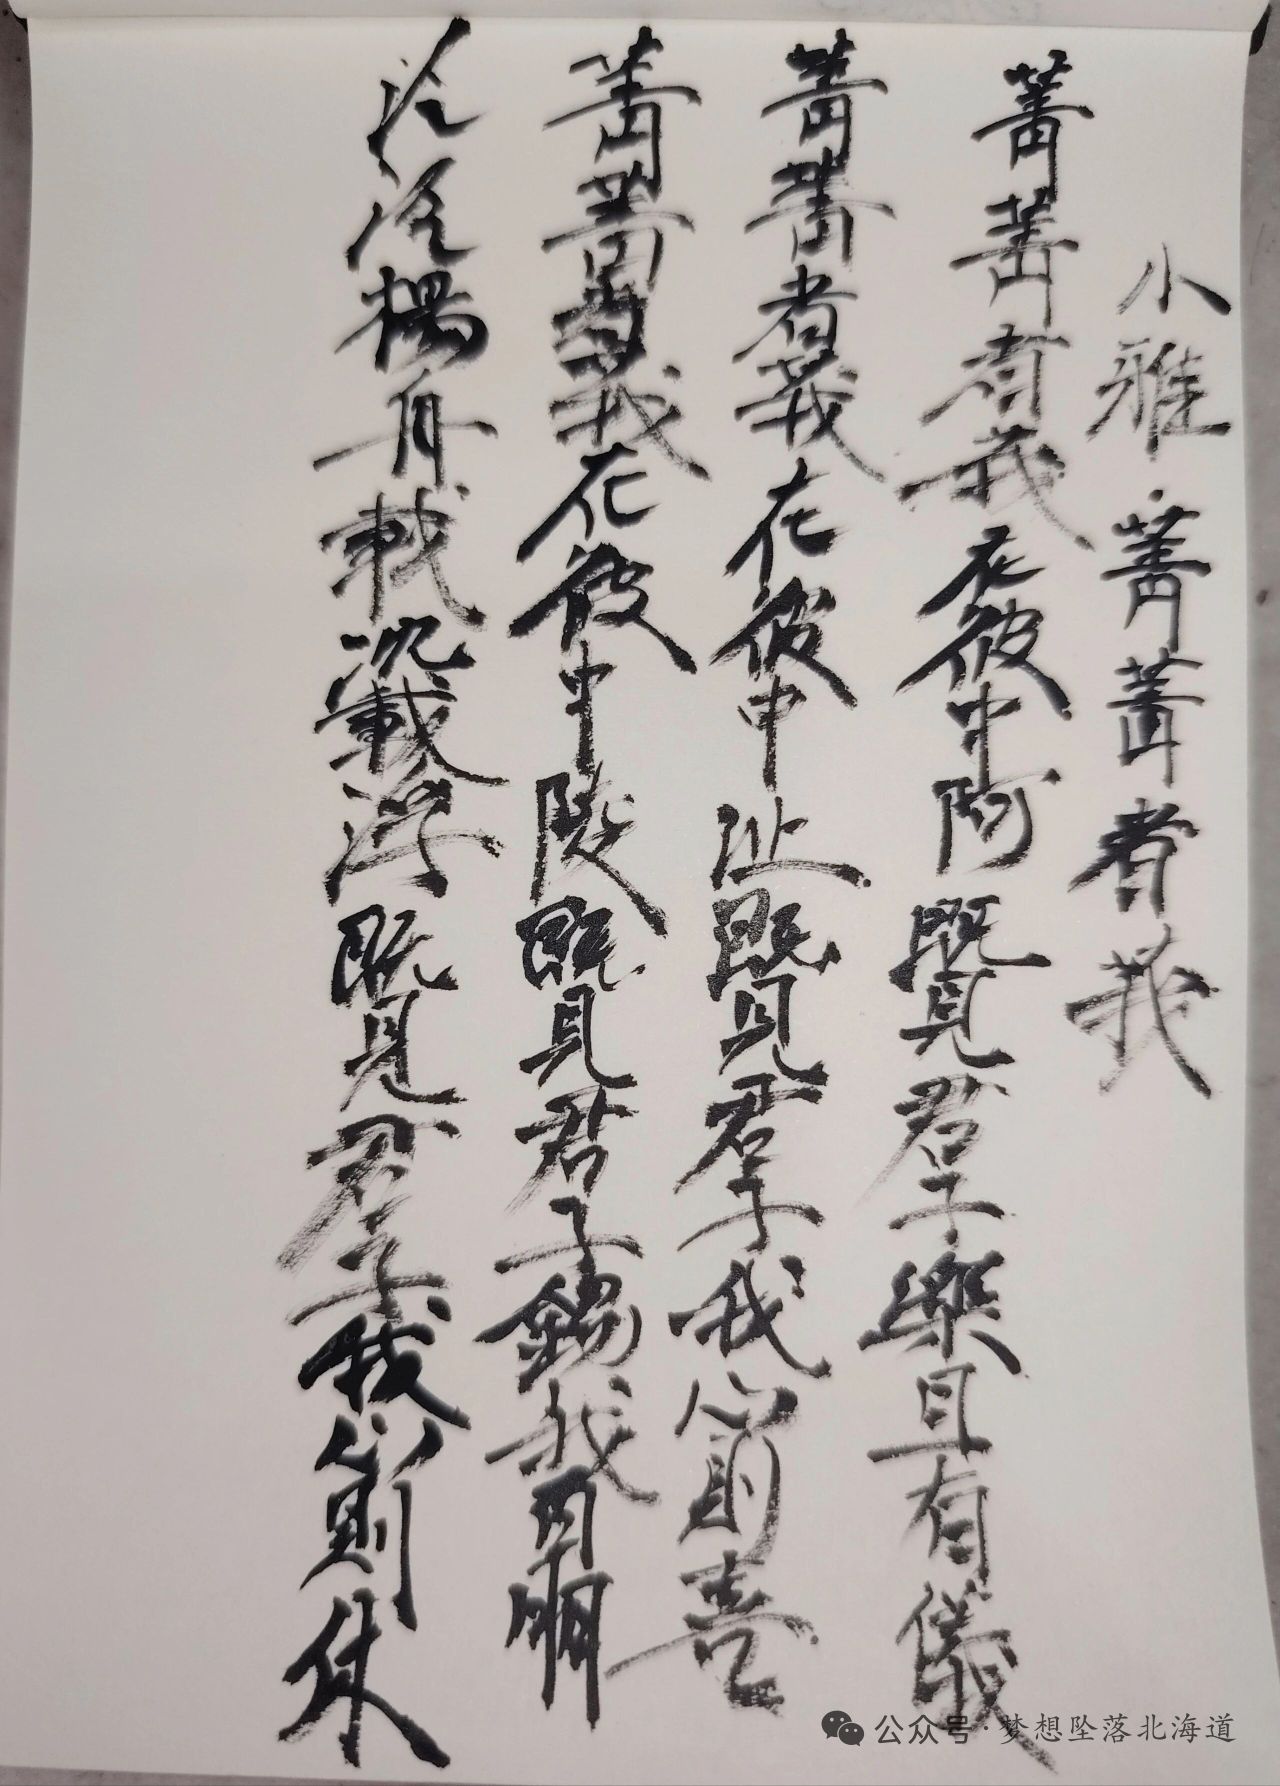 小雅·菁菁者莪
菁菁者莪在彼中阿既見君子樂且有儀
菁菁者莪在彼中沚既見君子我心則喜
菁菁者莪在彼中陵既見君子錫我百朋
泛泛楊舟載沉載浮既見君子我心則休
公众号·梦想坠落北海道